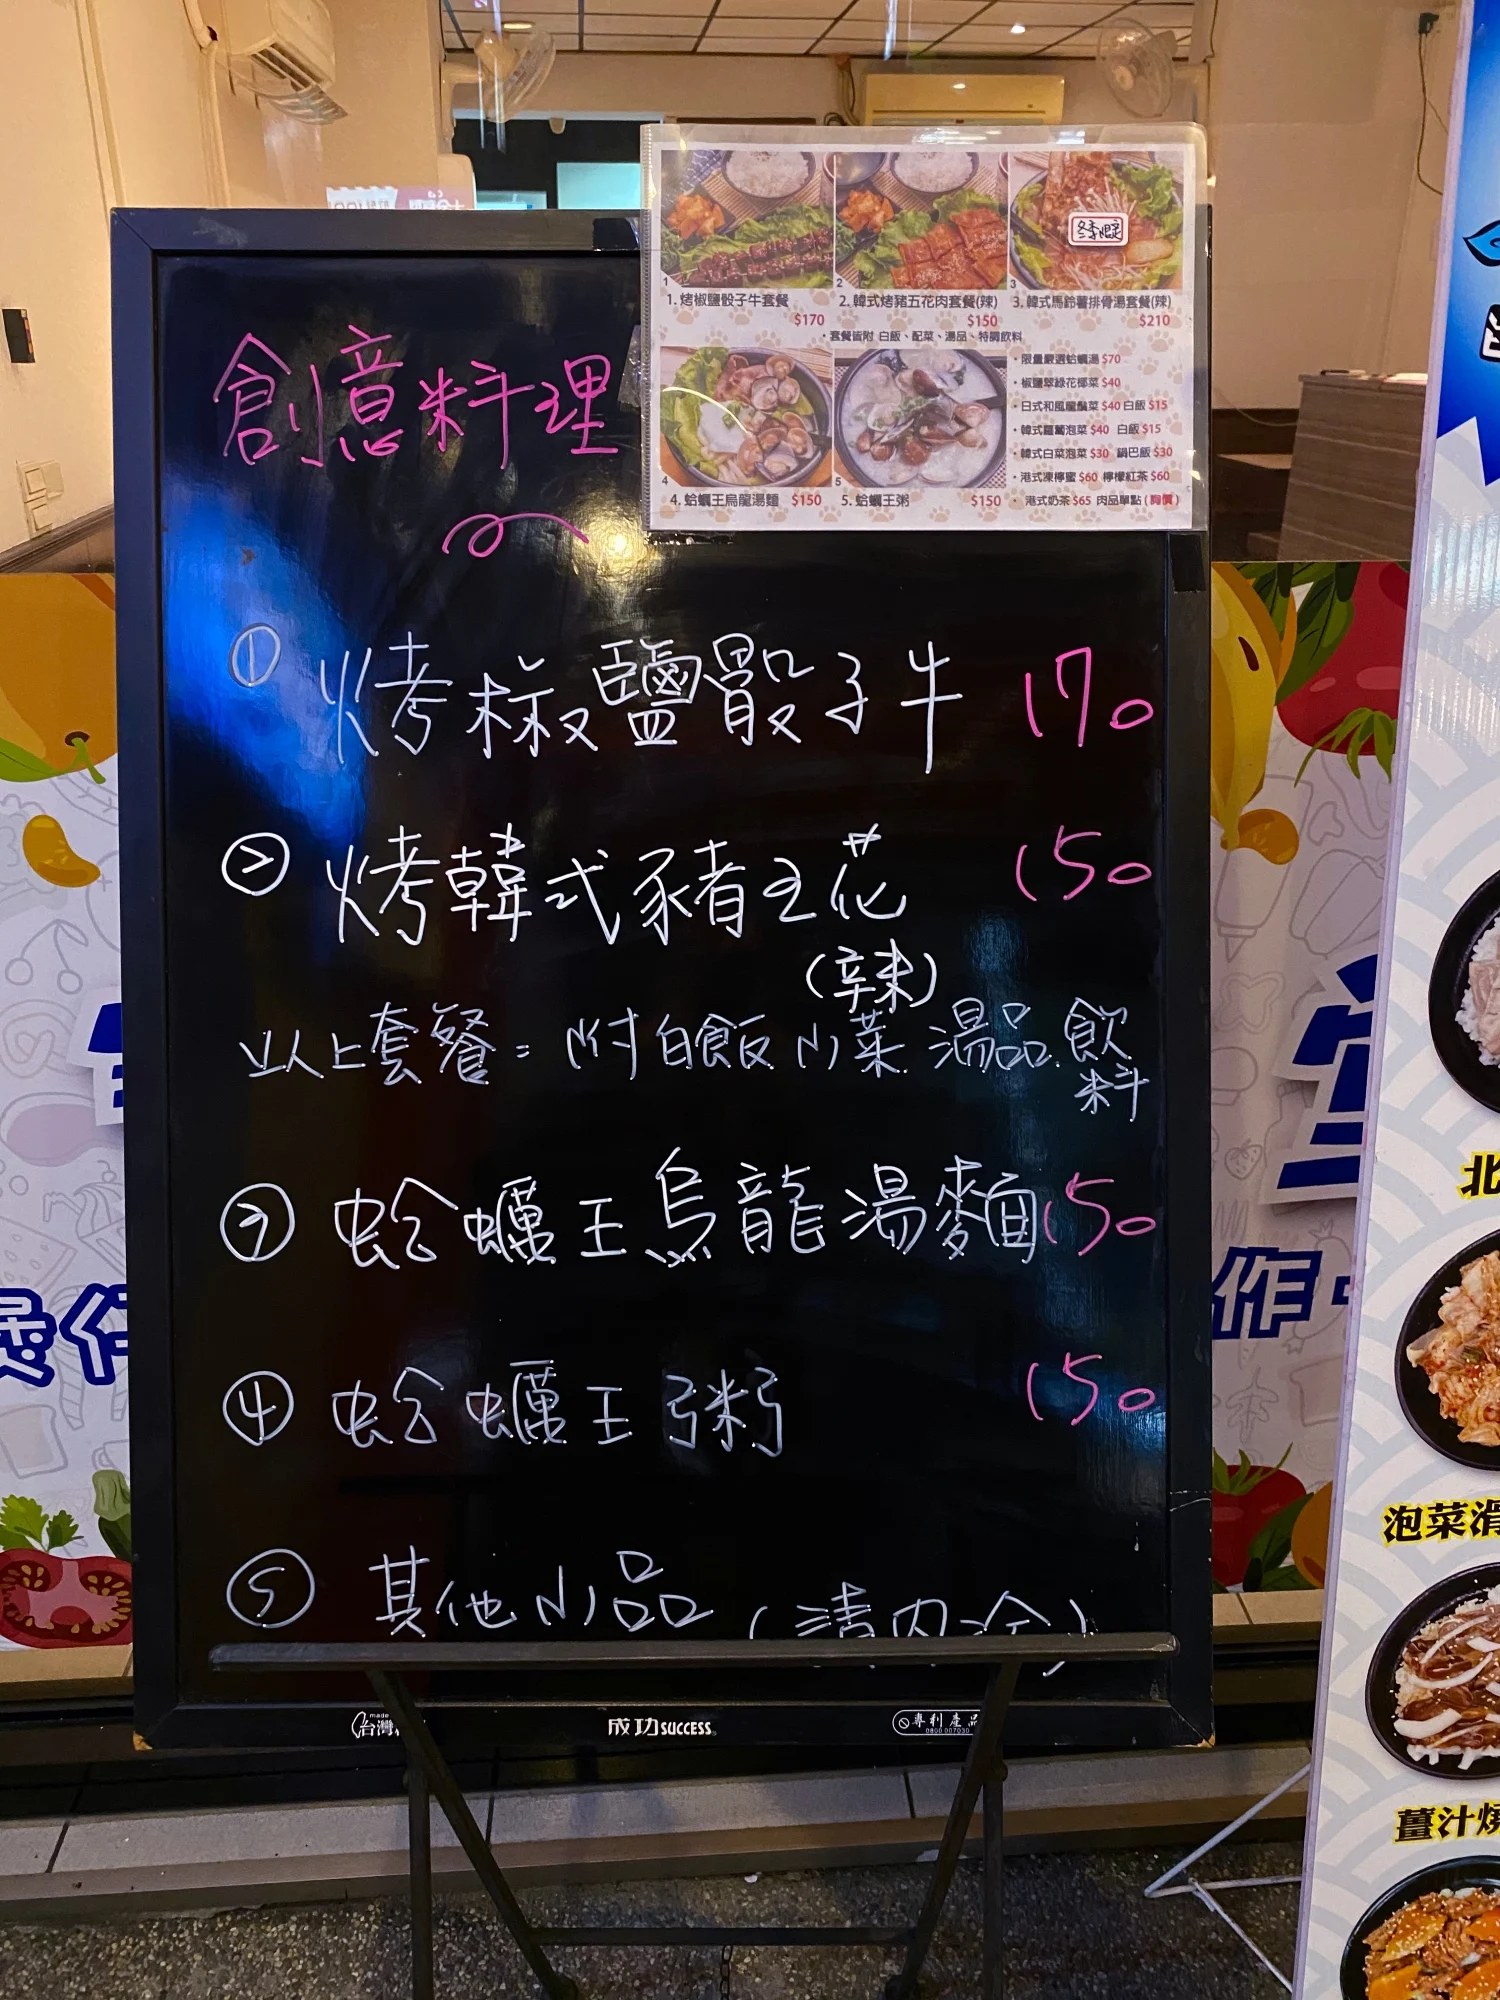 冬季限定
1. 烤椒鹽骰子牛套餐 $170
2. 韓式烤豬五花肉套餐(辣) $150
3. 韓式馬鈴薯排骨湯套餐(辣) $210
・套餐皆附 白飯、配菜、湯品、特調飲料
4. 蛤蠣王烏龍湯麵 $150
5. 蛤蠣王粥 $150
・限量嚴選蛤蠣湯 $70
・椒鹽翠綠花椰菜 $40
・日式和風龍鬚菜 $40 白飯 $15
・韓式蘿蔔泡菜 $40 白飯 $15
・韓式白菜泡菜 $30 鍋巴飯 $30
・港式凍檸蜜 $60 檸檬紅茶 $60
・港式奶茶 $65 肉品單點 (詢價)
創意料理
① 烤椒鹽骰子牛 170
② 烤韓式豬五花 150
(辣)
以上套餐: 附白飯 小菜 湯品 飲料
③ 蛤蠣王烏龍湯麵 150
④ 蛤蠣王粥 150
⑤ 其他小品 (請內洽)
made
台灣
成功SUCCESS
專利產品
作
北
泡菜滑
薑汁燒